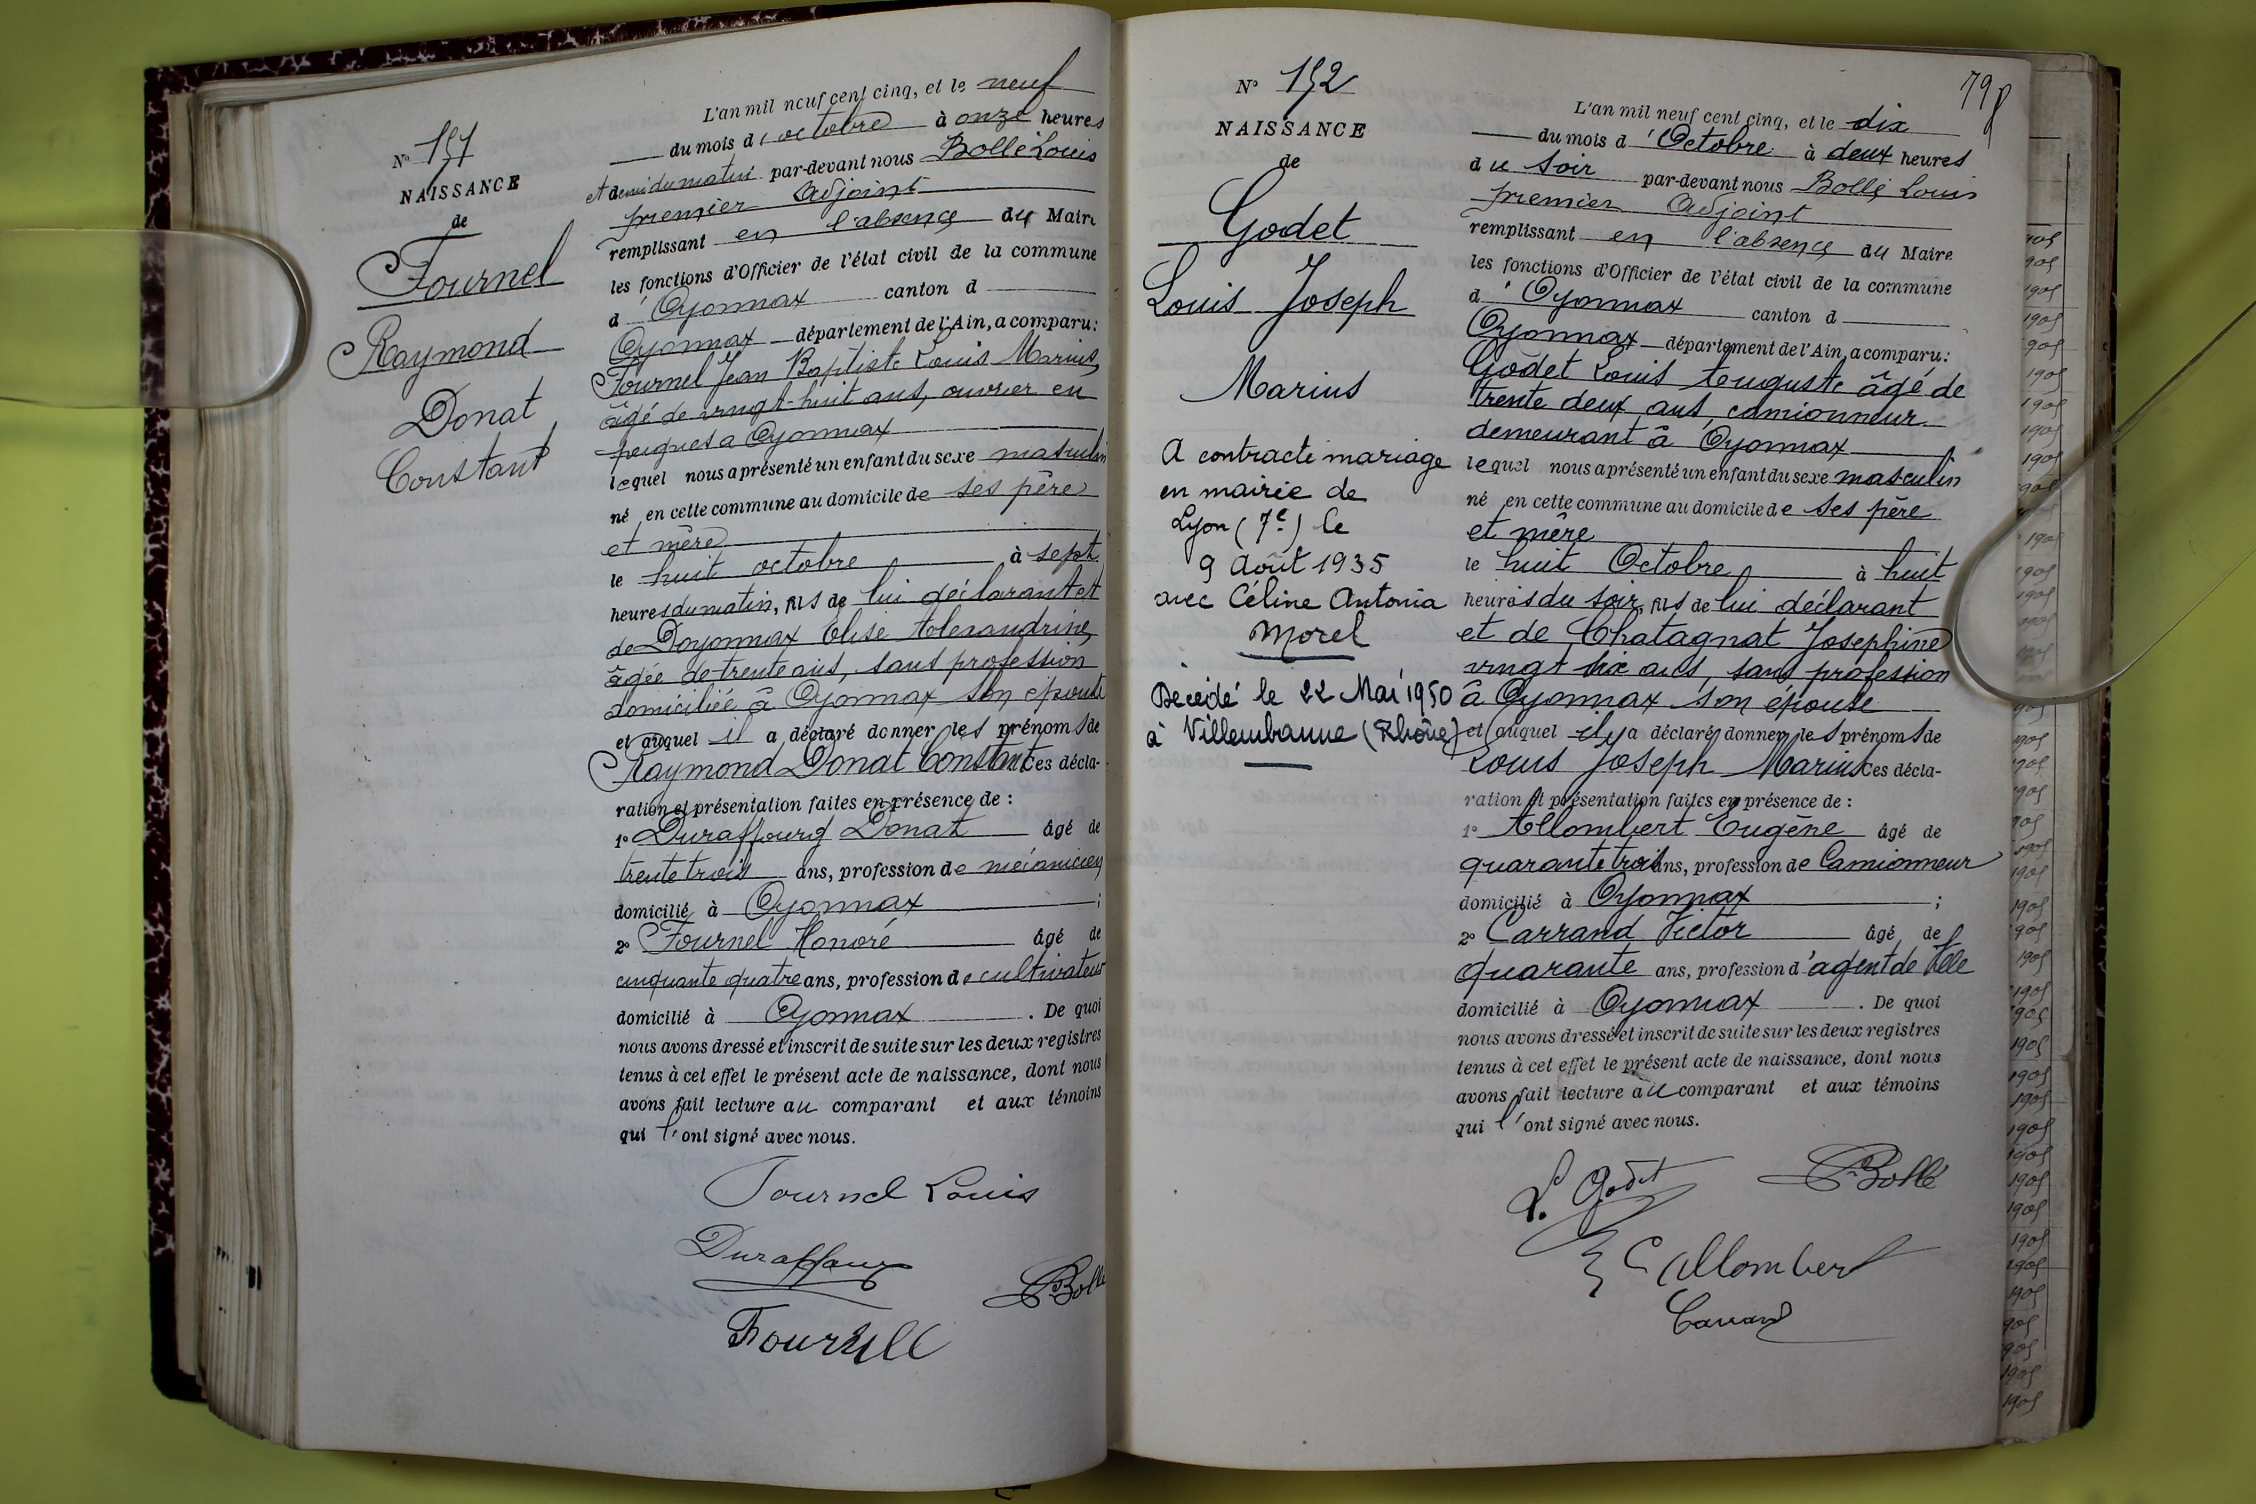 N° 151
NAISSANCE
de
Fournel
Raymond
Donat
Constant
L'an mil neuf cent cinq, et le neuf
du mois d'octobre à onze heures
et demi du matin par-devant nous Bollé Louis
premier Adjoint
remplissant en l'absence du Maire
les fonctions d'Officier de l'état civil de la commune
d'Oyonnax canton d
Oyonnax département de l'Ain, a comparu:
Fournel Jean Baptiste Louis Marius
âgé de vingt-huit ans, ouvrier en
peignes a Oyonnax
lequel nous a présenté un enfant du sexe masculin
né en cette commune au domicile de ses père
et mère
le huit octobre à sept
heures du matin, fils de lui déclarant et
de Doyonnax Elise Alexandrine
âgée de trente ans, sans profession
domiciliée à Oyonnax son épouse
et auquel il a déclaré donner les prénoms de
Raymond Donat Constant Ces décla-
ration et présentation faites en présence de :
1° Duraffourg Donat âgé de
trente trois ans, profession de mécanicien
domicilié à Oyonnax ;
2° Fournel Honoré âgé de
cinquante quatre ans, profession de cultivateur
domicilié à Oyonnax . De quoi
nous avons dressé et inscrit de suite sur les deux registres
tenus à cet effet le présent acte de naissance, dont nous
avons fait lecture au comparant et aux témoins
qui l'ont signé avec nous.
Fournel Louis
Duraffourg
Bollé
Fournel
79
N° 152
NAISSANCE
de
Godet
Louis Joseph
Marius
A contracté mariage
en mairie de
Lyon (7e) le
9 Août 1935
avec Céline Antonia
Morel
Décédé le 22 Mai 1950
à Villeurbanne (Rhône)
L'an mil neuf cent cinq, et le dix
du mois d'Octobre à deux heures
du soir par-devant nous Bollé Louis
premier Adjoint
remplissant en l'absence du Maire
les fonctions d'Officier de l'état civil de la commune
d'Oyonnax canton d
Oyonnax département de l'Ain, a comparu:
Godet Louis Auguste âgé de
trente deux ans, camionneur
demeurant à Oyonnax
lequel nous a présenté un enfant du sexe masculin
né en cette commune au domicile de ses père
et mère
le huit Octobre à huit
heures du soir, fils de lui déclarant
et de Chatagnat Josephine
vingt six ans, sans profession
à Oyonnax son épouse
et auquel il y a déclaré donner les prénoms de
Louis Joseph Marius Ces décla-
ration et présentation faites en présence de :
1° Allombert Eugène âgé de
quarante trois ans, profession de Camionneur
domicilié à Oyonnax ;
2° Carrand Victor âgé de
quarante ans, profession d'agent de ville
domicilié à Oyonnax . De quoi
nous avons dressé et inscrit de suite sur les deux registres
tenus à cet effet le présent acte de naissance, dont nous
avons fait lecture au comparant et aux témoins
qui l'ont signé avec nous.
L. Godet
Bollé
E Allombert
Carrand